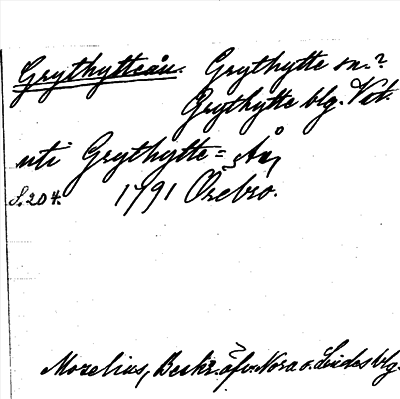 Grythytteån. Grythytte sn.?
Grythytte blg. Vst.
uti Grythytte = Ån,
S. 204. 1791 Örebro.
Morelius, Beskr. öfv. Nora o. Lindes blg.